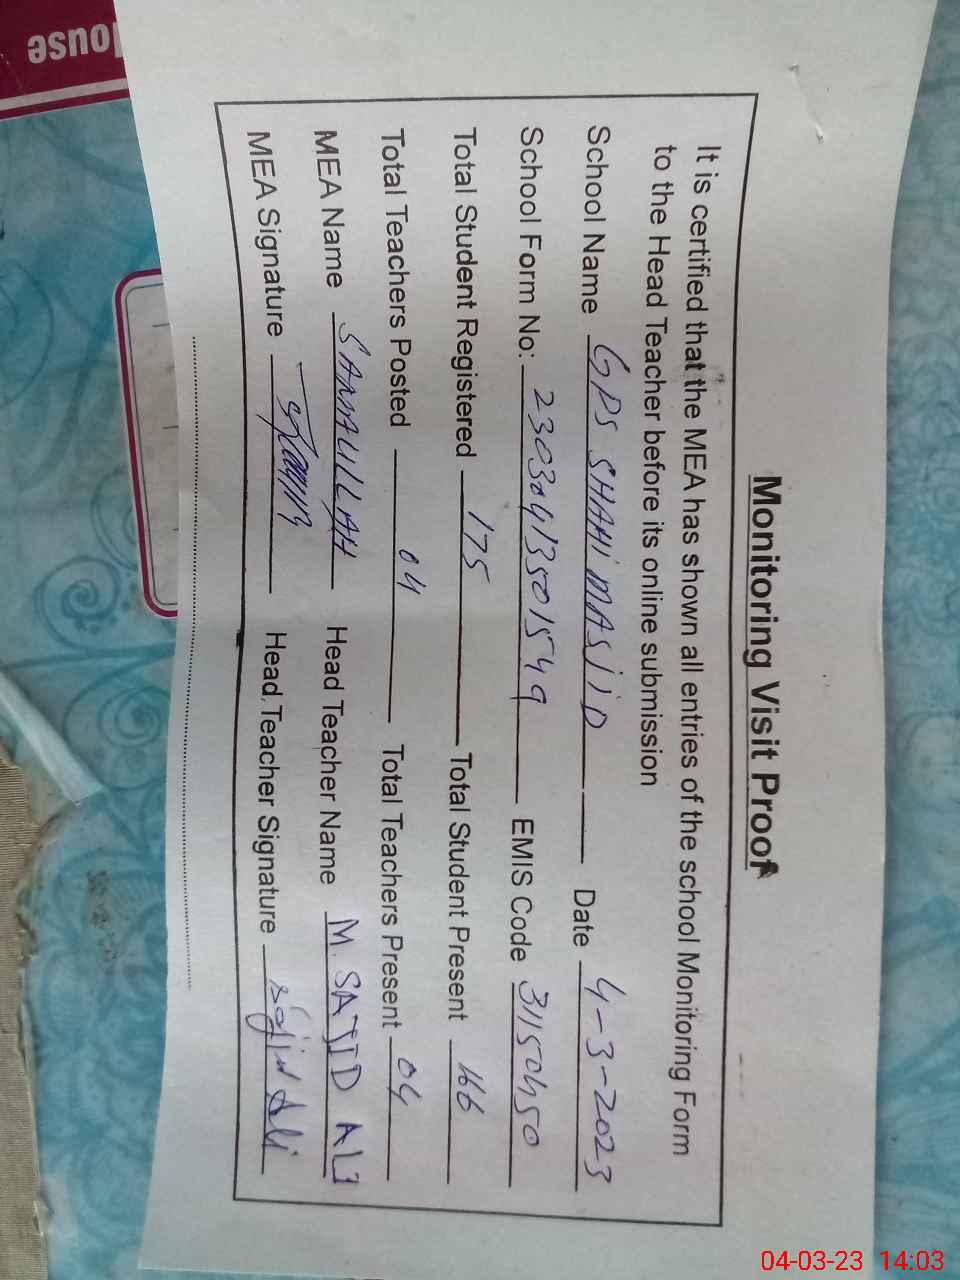 Monitoring Visit Proof
It is certified that the MEA has shown all entries of the school Monitoring Form
to the Head Teacher before its online submission
School Name GPS SHAHI MASJID Date 4-3-2023
School Form No: 23030413501549 EMIS Code 31150450
Total Student Registered 175 Total Student Present 166
Total Teachers Posted 04 Total Teachers Present 04
MEA Name SANAULLAH Head Teacher Name M. SAJID ALI
MEA Signature Head Teacher Signature Sajid Ali
ouse
04-03-23 14:03